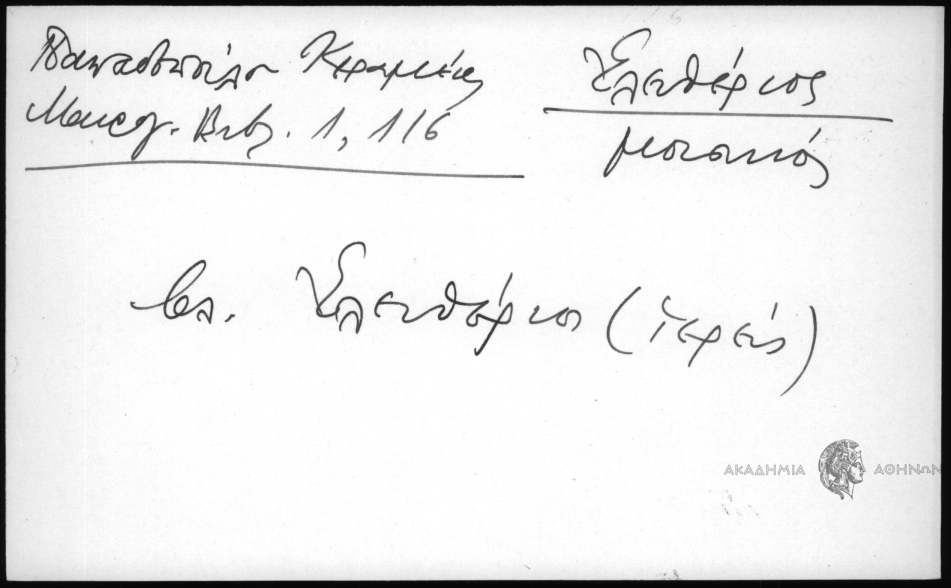 Παπαδοπούλου Κεραμέως
Μαυρογ. Βιβ. 1, 116
Ἐλευθέριος
μουσικός
βλ. Ἐλευθέριος (ἱερεύς)
ΑΚΑΔΗΜΙΑ ΑΘΗΝΩΝ